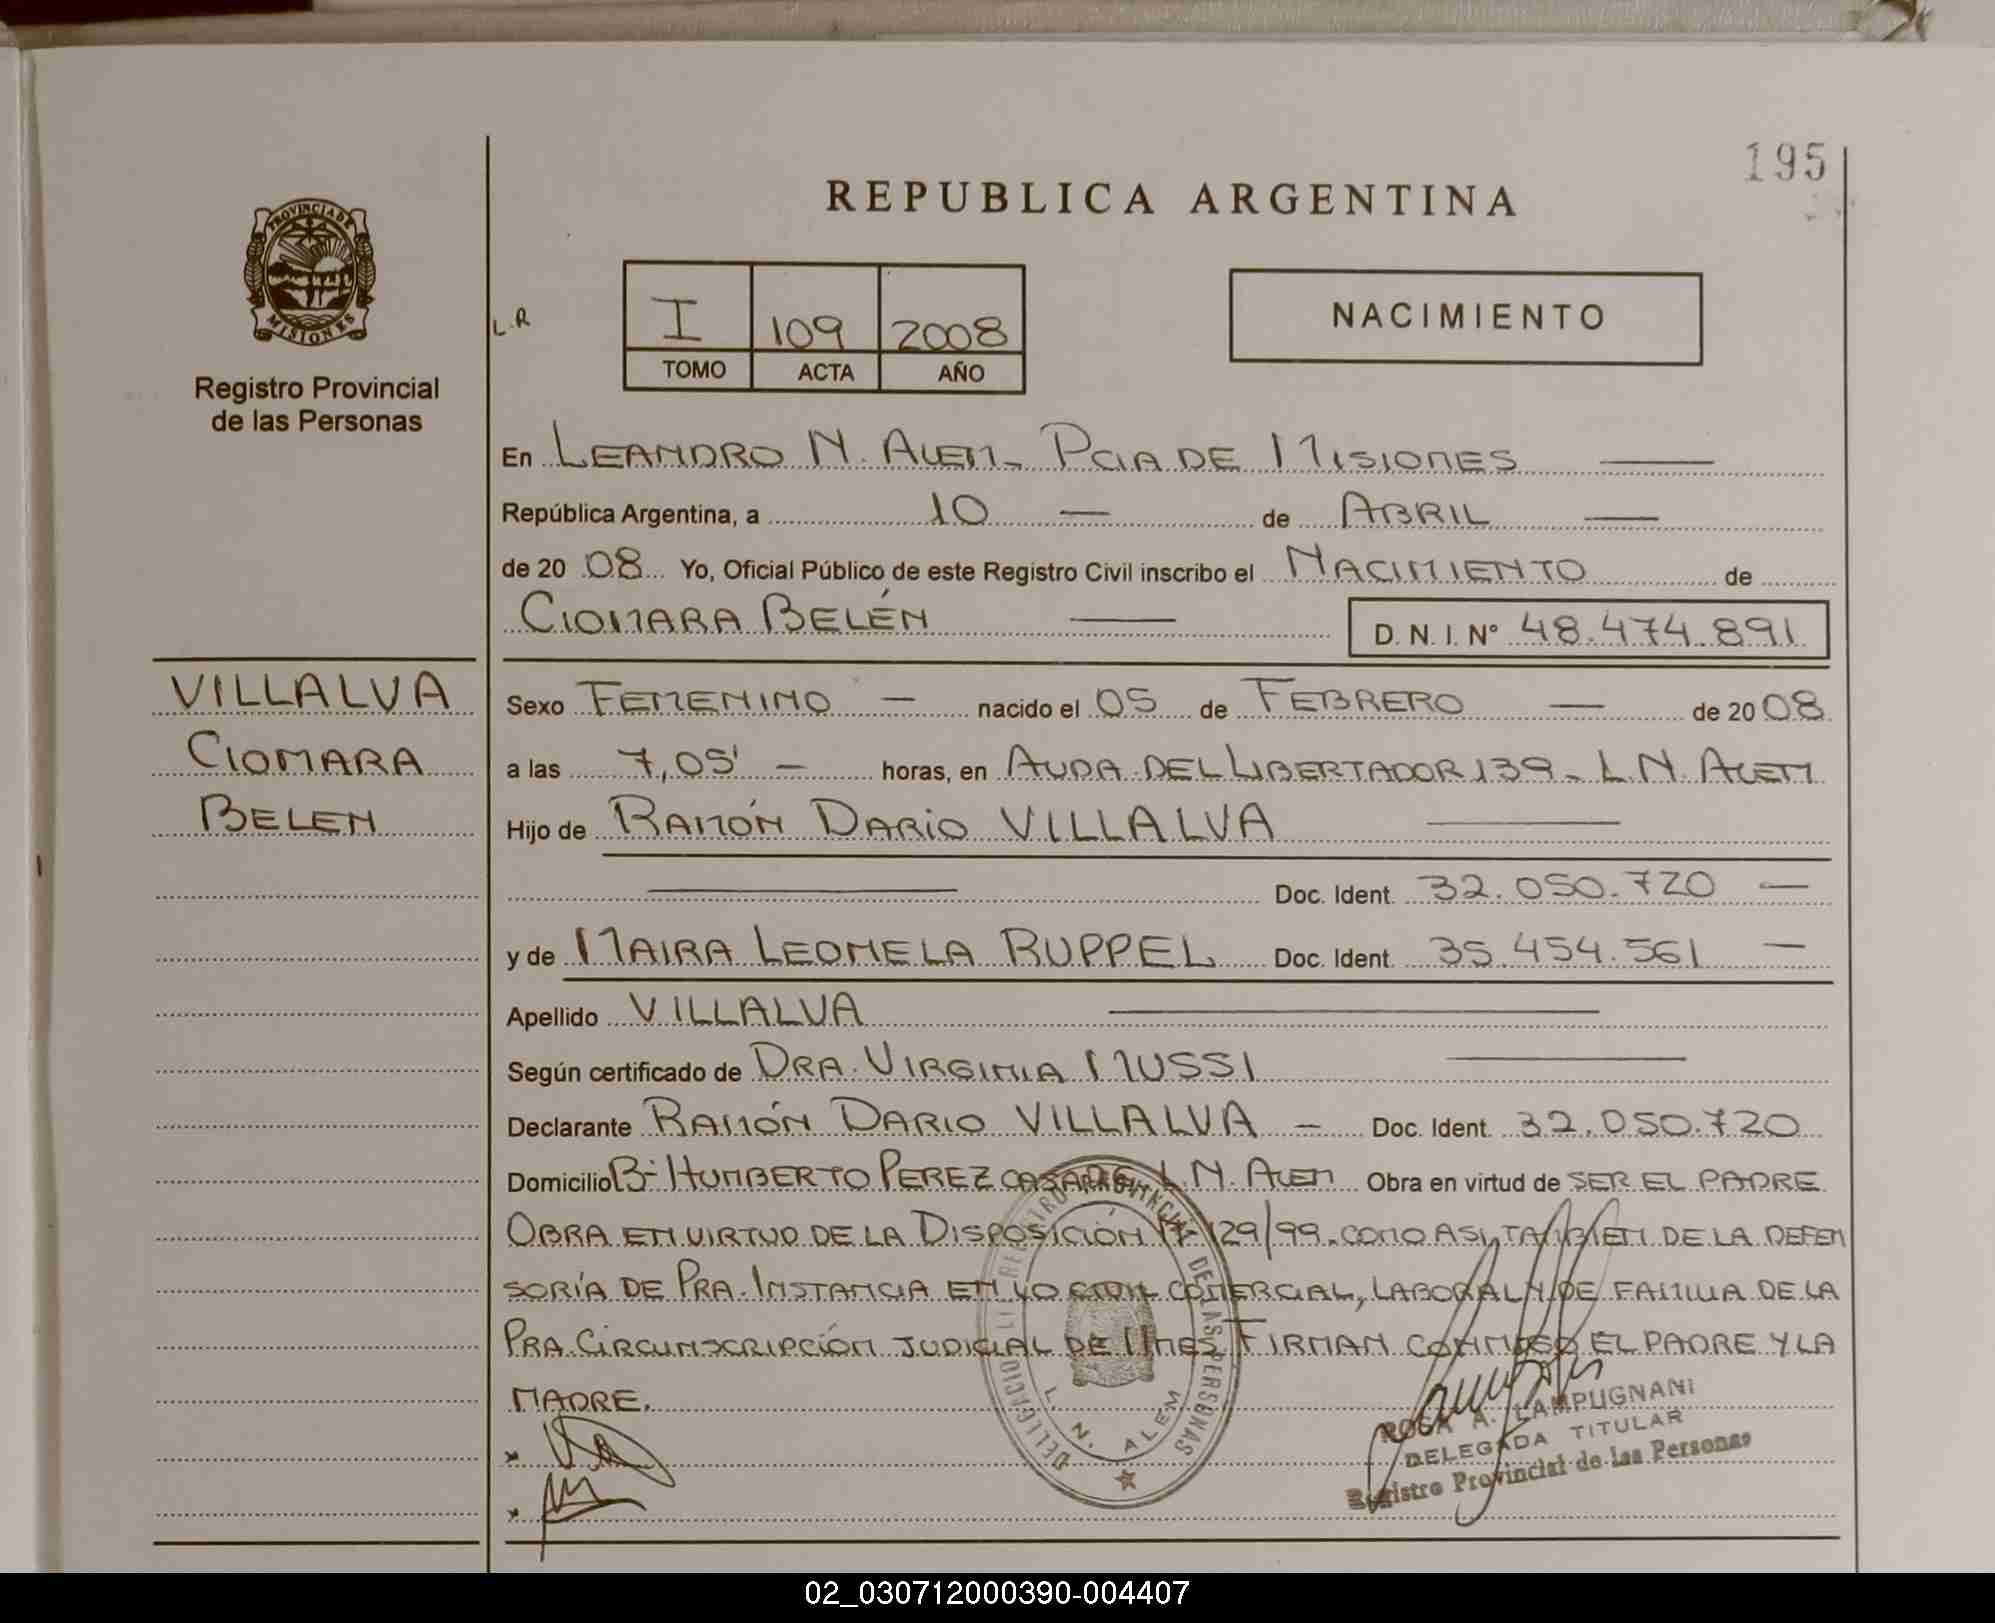 195
REPUBLICA ARGENTINA
PROVINCIA DE
MISIONES
Registro Provincial
de las Personas
L.R
I 109 2008
TOMO ACTA AÑO
NACIMIENTO
En LEANDRO N. ALEM- PCIA DE MISIONES
República Argentina, a 10 — de ABRIL —
de 20 08 Yo, Oficial Público de este Registro Civil inscribo el NACIMIENTO de
CIOMARA BELÉN — D. N. I. N° 48.474.891
VILLALVA
CIOMARA
BELEN
Sexo FEMENINO — nacido el 05 de FEBRERO — de 20 08
a las 7,05' — horas, en AVDA. DEL LIBERTADOR 139- L.N. ALEM
Hijo de RAMÓN DARIO VILLALVA —
— Doc. Ident. 32.050.720 —
y de MAIRA LEONELA RUPPEL Doc. Ident. 35.454.561 —
Apellido VILLALVA —
Según certificado de DRA. VIRGINIA MUSSI —
Declarante RAMÓN DARIO VILLALVA — Doc. Ident. 32.050.720
Domicilio B- HUMBERTO PEREZ L.N. ALEM Obra en virtud de SER EL PADRE
OBRA EN VIRTUD DE LA DISPOSICIÓN N- 129/99. COMO ASI, TAMBIEN DE LA DEFEN
SORÍA DE PRA. INSTANCIA EN LO CIVIL COMERCIAL, LABORAL Y DE FAMILIA DE LA
PRA. CIRCUNSCRIPCIÓN JUDICIAL DE MNES FIRMAN CONMIGO EL PADRE Y LA
MADRE.
REGISTRO PROVINCIAL DE LAS PERSONAS
L. N. ALEM
ROSA A. LAMPUGNANI
DELEGADA TITULAR
Registro Provincial de las Personas
02_030712000390-004407